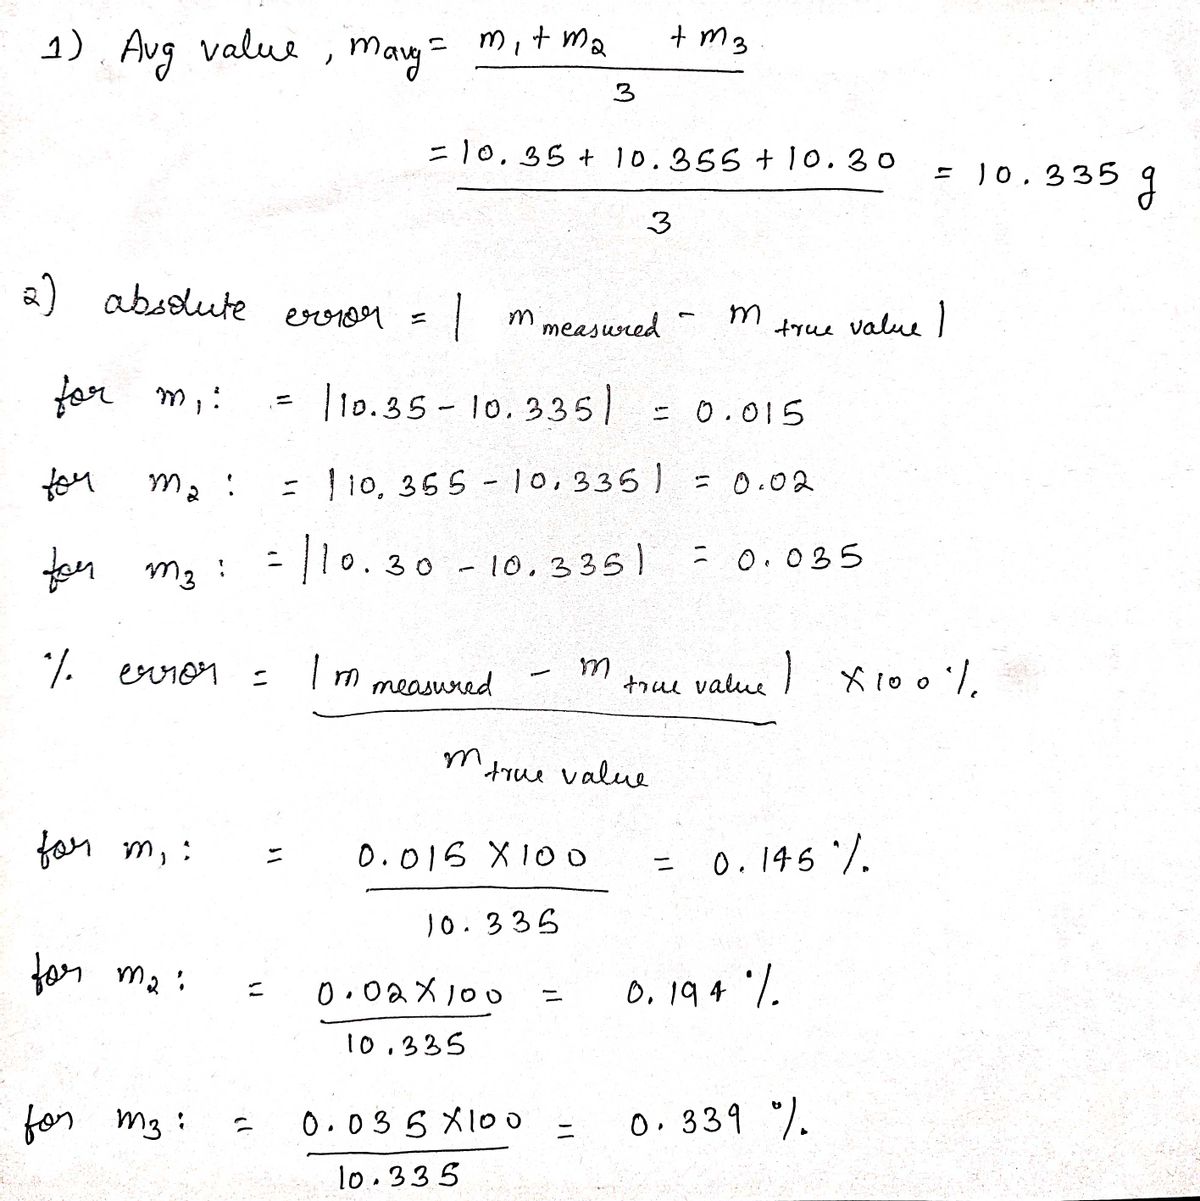 1) Avg value, mavg = m1 + m2 + m3
3
= 10.35 + 10.355 + 10.30 = 10.335 g
3
2) absolute error = | m measured - m true value |
for m1: = |10.35 - 10.335| = 0.015
for m2 : = |10.355 - 10.335| = 0.02
for m3 : = |10.30 - 10.335| = 0.035
% error = | m measured - m true value | × 100 %
m true value
for m1 : = 0.015 × 100 = 0.145 %
10.335
for m2 : = 0.02 × 100 = 0.194 %
10.335
for m3 : = 0.035 × 100 = 0.339 %
10.335